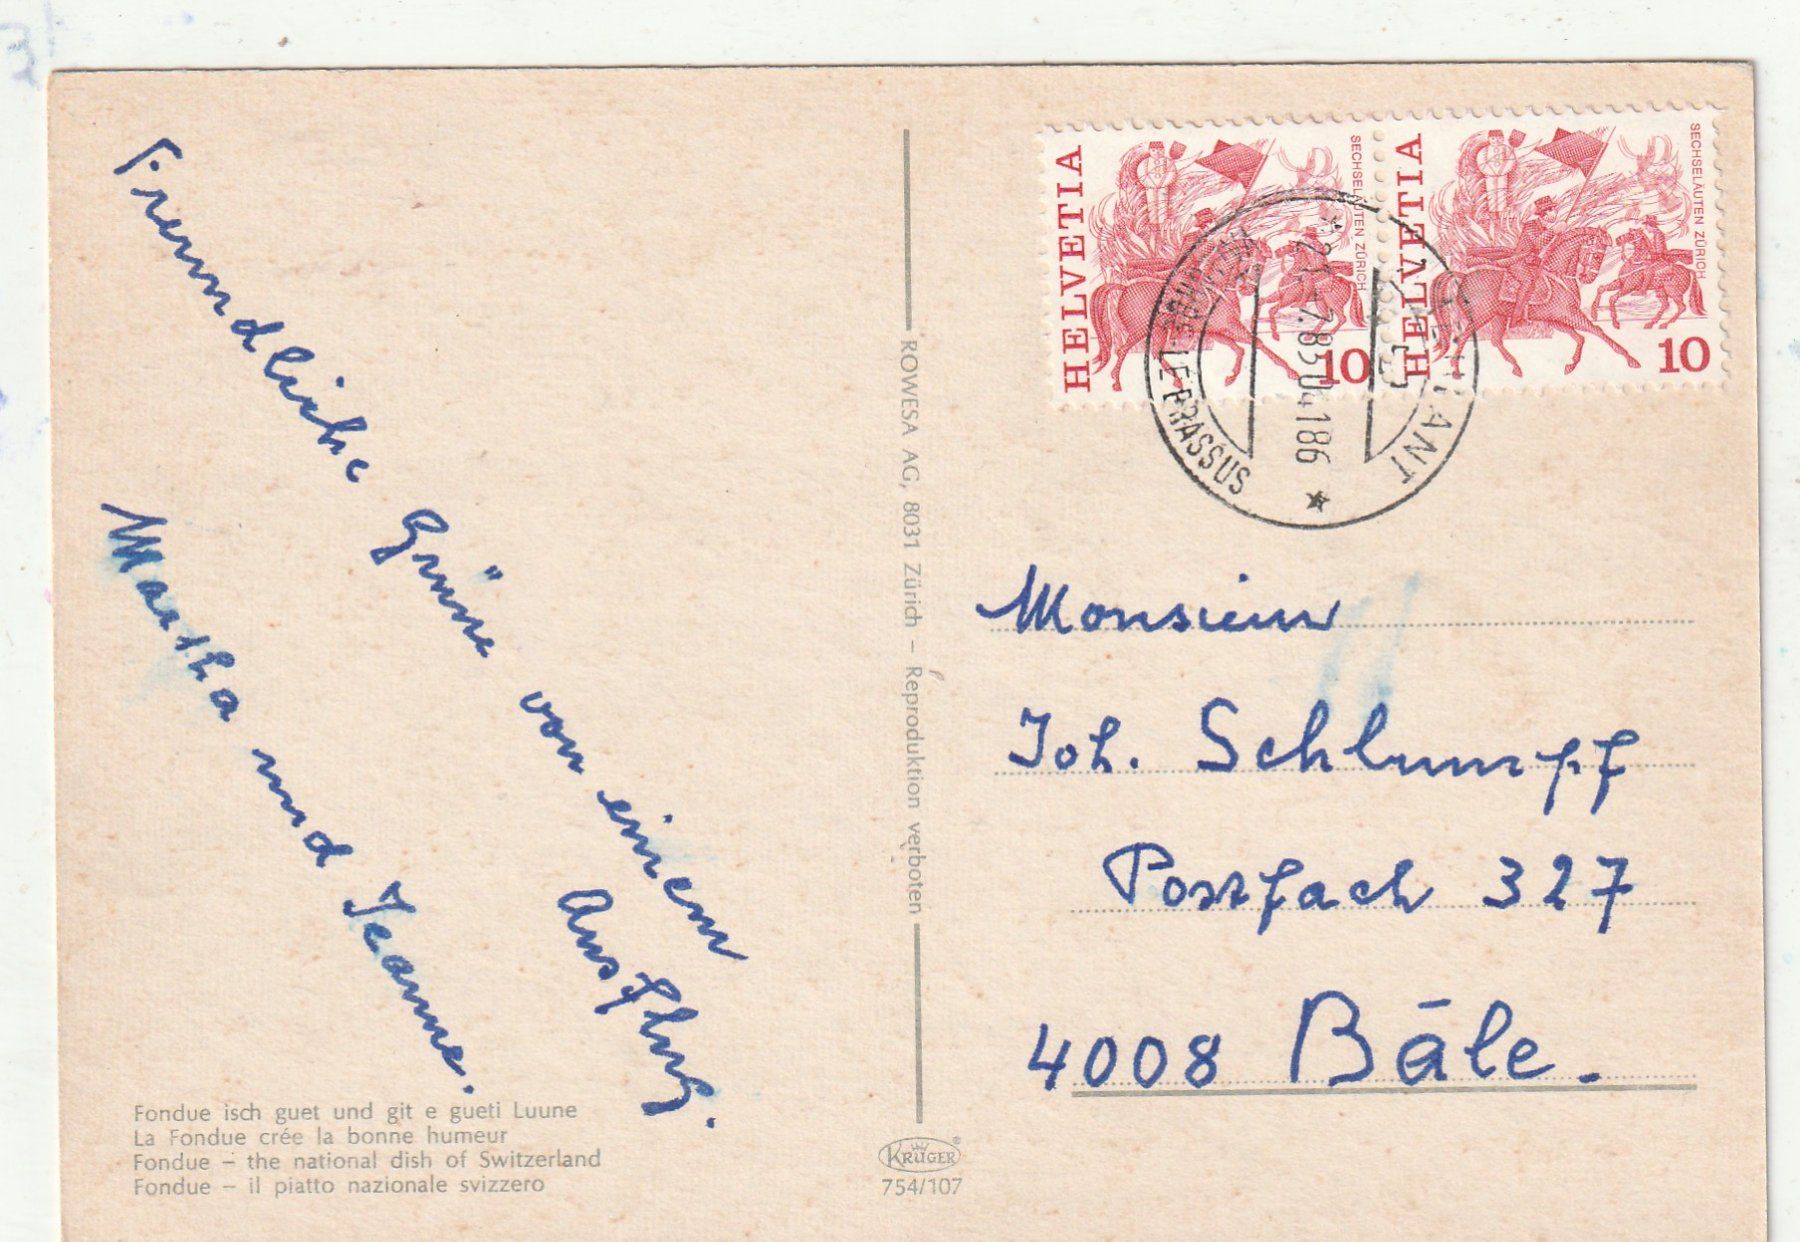 Freundliche Grüsse von einem
Ausflug.
Martha und Jeanne.
Fondue isch guet und git e gueti Luune
La Fondue crée la bonne humeur
Fondue – the national dish of Switzerland
Fondue – il piatto nazionale svizzero
ROWESA AG, 8031 Zürich – Reproduktion verboten
KRÜGER
754/107
HELVETIA
SECHSELÄUTEN ZÜRICH
10
HELVETIA
SECHSELÄUTEN ZÜRICH
10
LE BRASSUS
Monsieur
Joh. Schlumpf
Postfach 327
4008 Bâle.